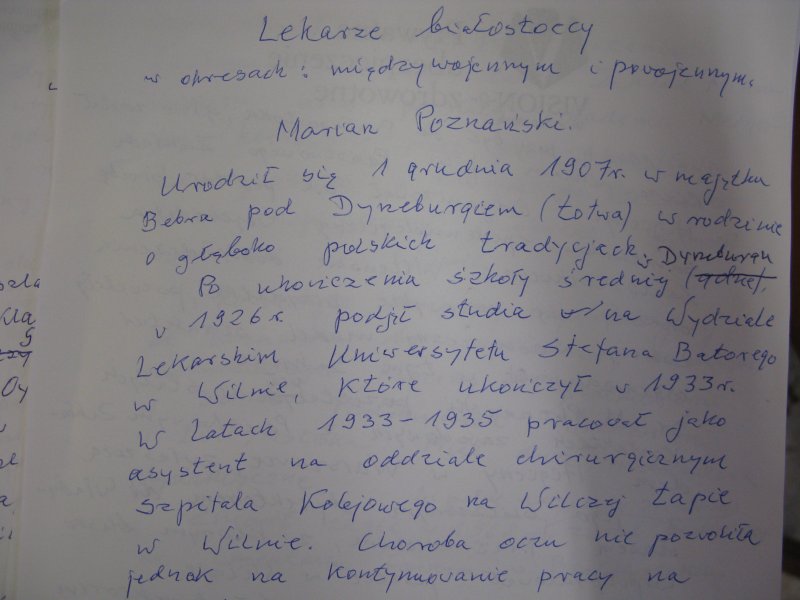 Lekarze białostoccy
w okresach: międzywojennym i powojennym.
Marian Poznański.
Urodził się 1 grudnia 1907r. w majątku
Bebra pod Dyneburgiem (Łotwa) w rodzinie
o głęboko polskich tradycjach.
w Dyneburgu
Po ukończenia szkoły średniej (gdzie),
w 1926r. podjął studia na Wydziale
Lekarskim Uniwersytetu Stefana Batorego
w Wilnie, które ukończył w 1933r.
W latach 1933-1935 pracował jako
asystent na oddziale chirurgicznym
Szpitala Kolejowego na Wilczej Łapie
w Wilnie. Choroba oczu nie pozwoliła
jednak na kontynuowanie pracy na